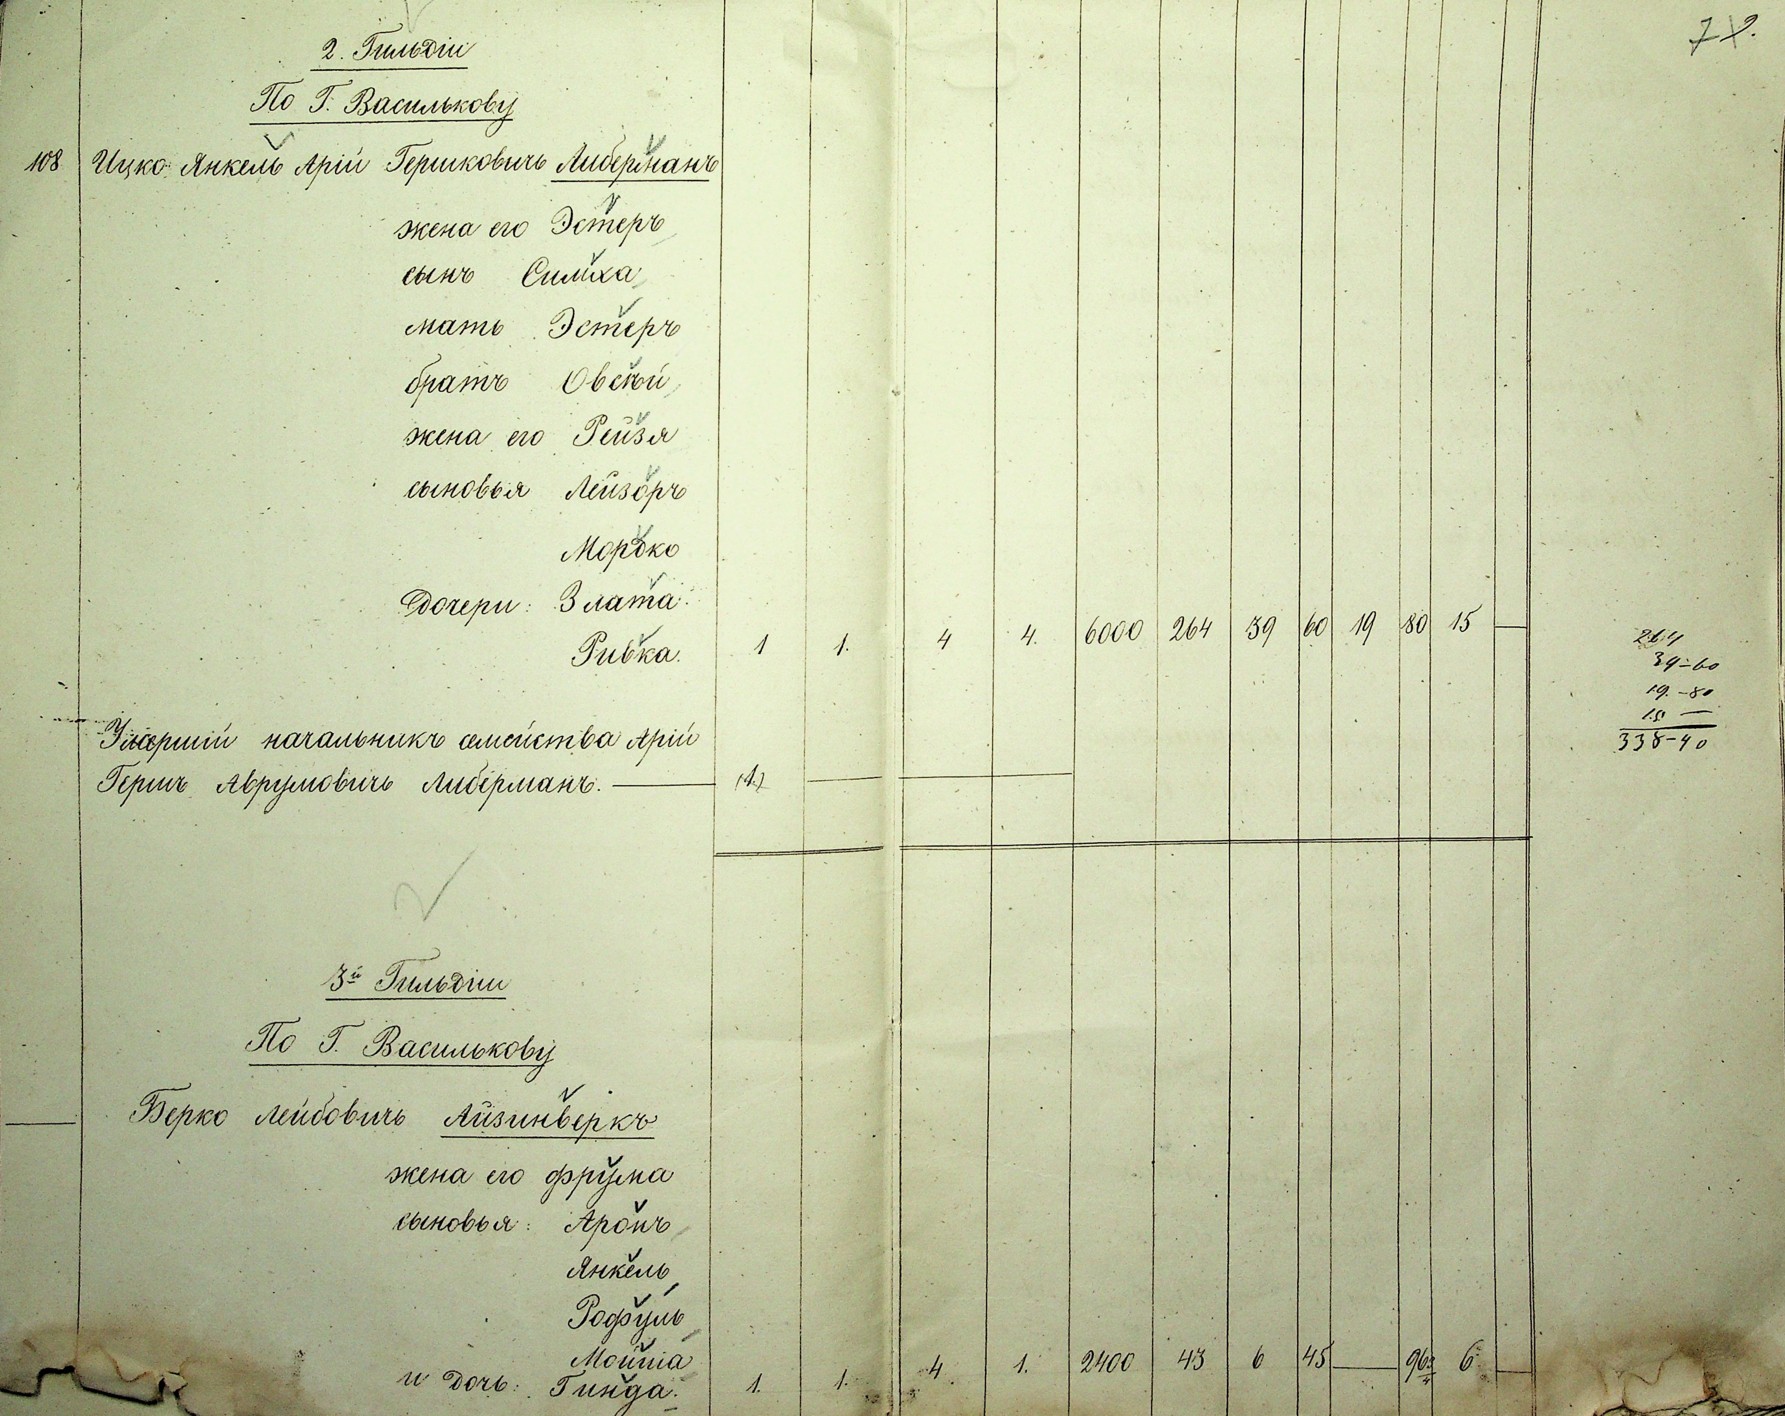 72.
2. Гильдіи
По Г. Василькову
108 Ицко Янкель Арій Гершковичъ Либерманъ
жена его Эстеръ
сынъ Симха
мать Эстеръ
братъ Овсѣй
жена его Рейзя
сыновья Лейзоръ
Мордко
Дочери: Злата.
Ривка. 1 1. 4 4. 6000 264 39 60 19 80 15 —
264
39-60
19.-80
15 —
338-40
Умершій начальникъ семейства Арій
Гершъ Аврумовичъ Либерманъ. — (1.) —
3й Гильдіи
По Г. Василькову
— Берко Лейбовичъ Айзинверкъ
жена его Фрума
сыновья: Аронъ
Янкель
Рофуль
Мойша
и Дочь: Гинда. 1. 1. 4 1. 2400 43 6 45 — 96 6 —